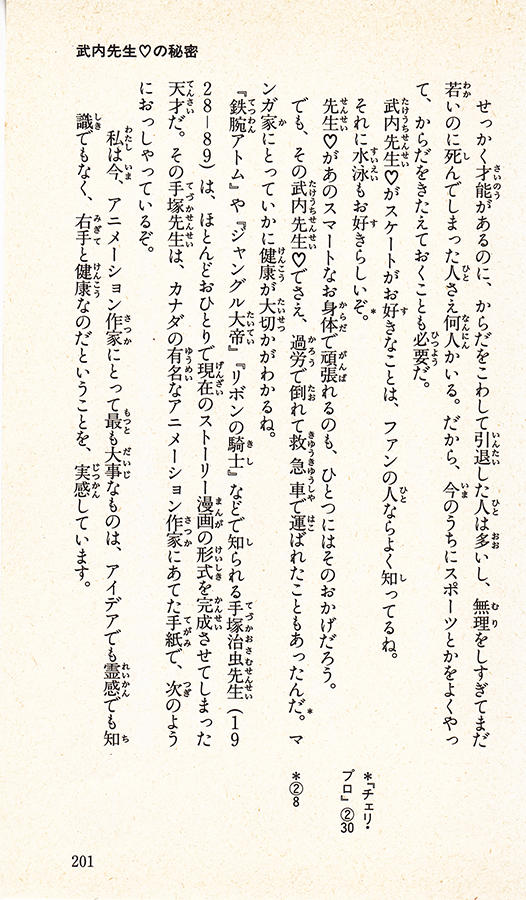 武内先生♡の秘密
せっかく才能があるのに、からだをこわして引退した人は多いし、無理をしすぎてまだ
若いのに死んでしまった人さえ何人かいる。だから、今のうちにスポーツとかをよくやっ
て、からだをきたえておくことも必要だ。
武内先生♡がスケートがお好きなことは、ファンの人ならよく知ってるね。
それに水泳もお好きらしいぞ。*
先生♡があのスマートなお身体で頑張れるのも、ひとつにはそのおかげだろう。
でも、その武内先生♡でさえ、過労で倒れて救急車で運ばれたこともあったんだ。*マ
ンガ家にとっていかに健康が大切かがわかるね。
『鉄腕アトム』や『ジャングル大帝』『リボンの騎士』などで知られる手塚治虫先生(19
28–89)は、ほとんどおひとりで現在のストーリー漫画の形式を完成させてしまった
天才だ。その手塚先生は、カナダの有名なアニメーション作家にあてた手紙で、次のよう
におっしゃっているぞ。
私は今、アニメーション作家にとって最も大事なものは、アイデアでも霊感でも知
識でもなく、右手と健康なのだということを、実感しています。
*『チェリ・
プロ』②30
*②8
201